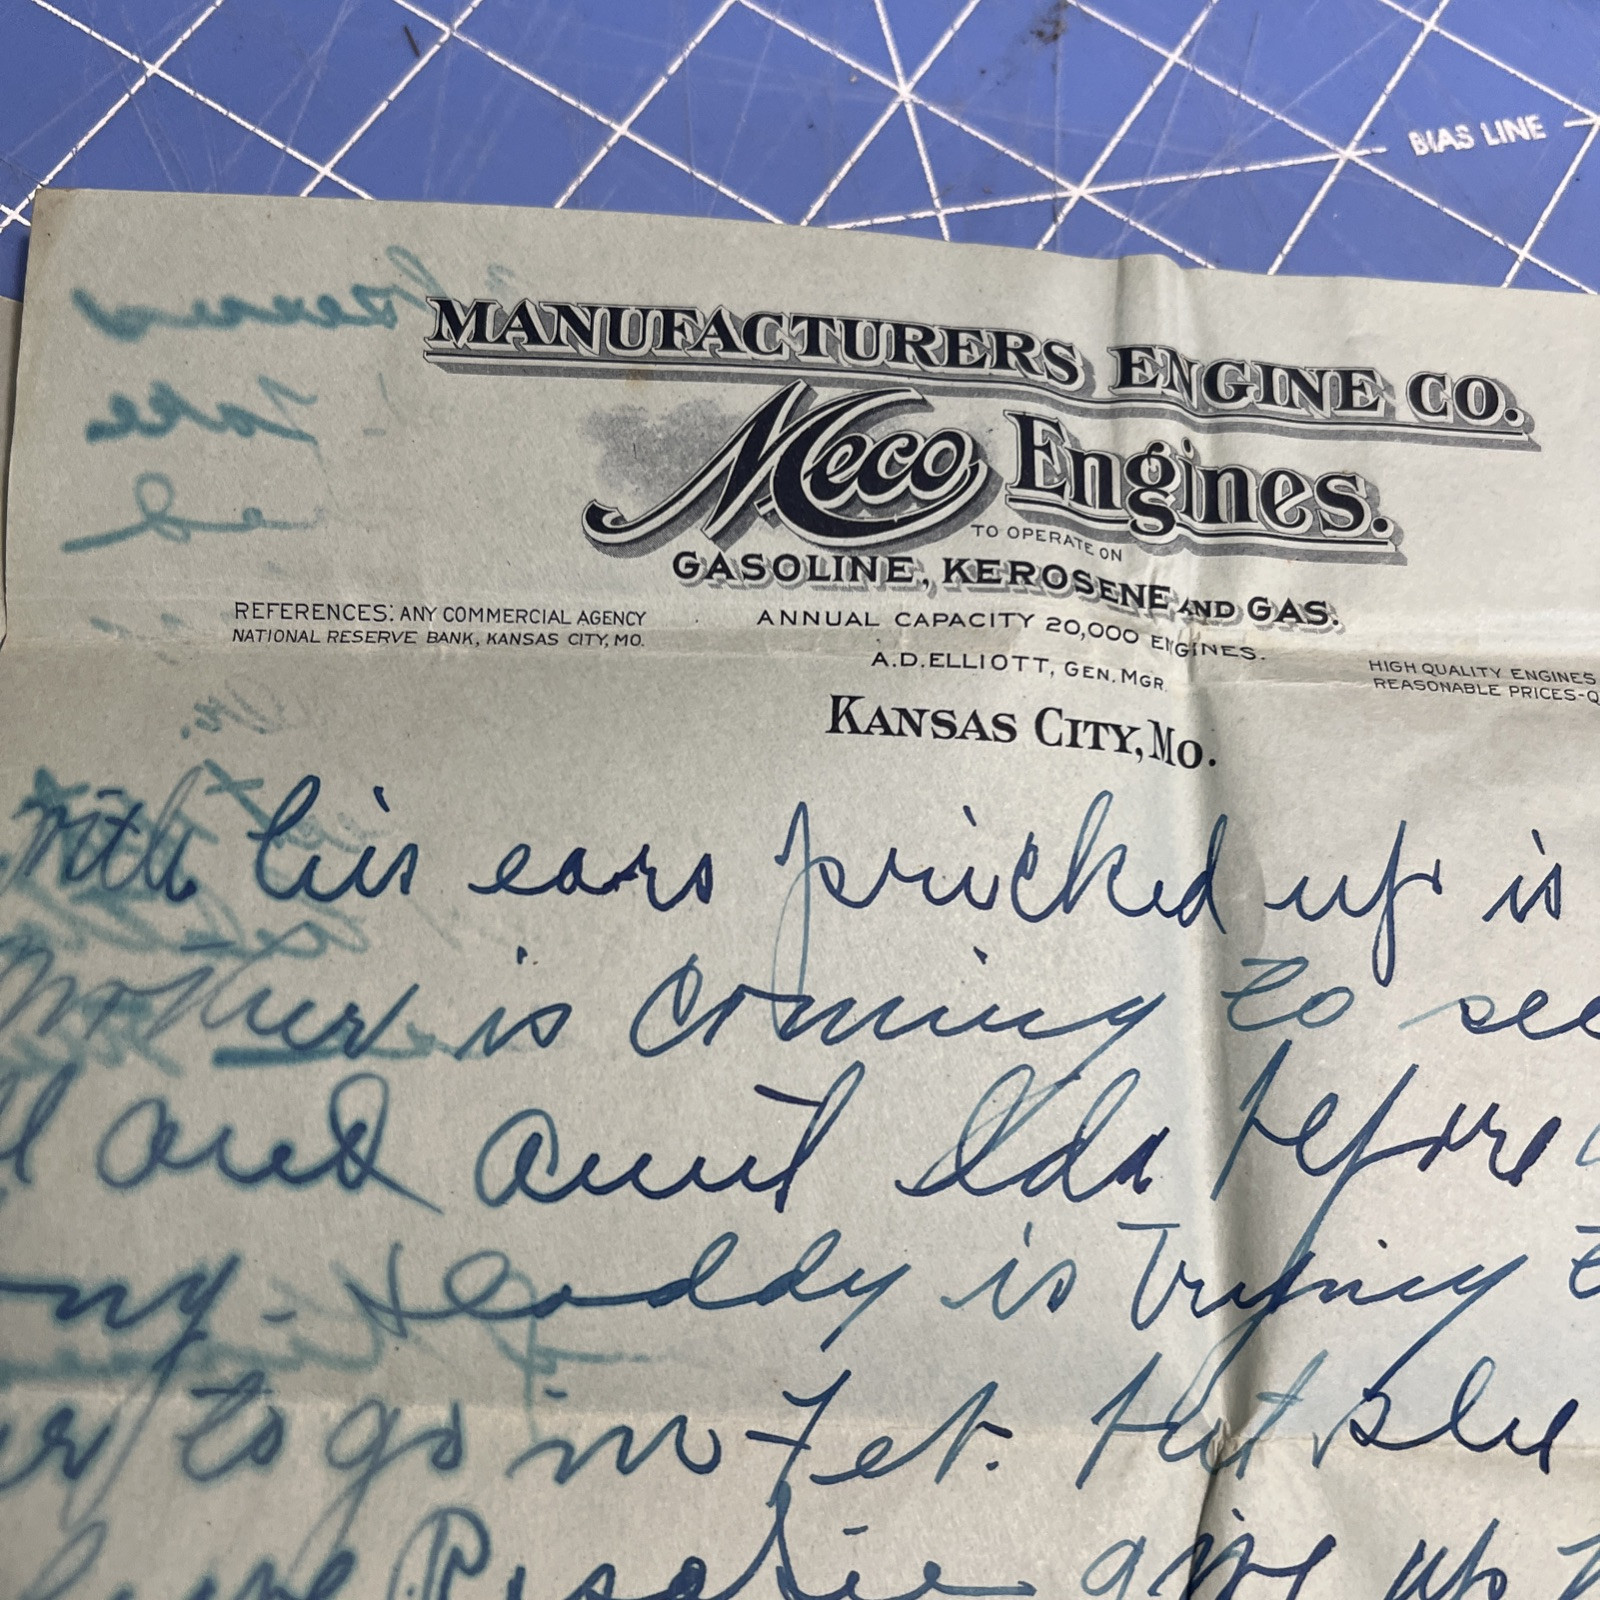 BIAS LINE
MANUFACTURERS ENGINE CO.
Meco Engines.
TO OPERATE ON
GASOLINE, KEROSENE AND GAS.
REFERENCES: ANY COMMERCIAL AGENCY
NATIONAL RESERVE BANK, KANSAS CITY, MO.
ANNUAL CAPACITY 20,000 ENGINES.
A.D. ELLIOTT, GEN. MGR.
HIGH QUALITY ENGINES
REASONABLE PRICES-Q
KANSAS CITY, MO.
with his ears pricked up is
Mother is coming to see
and aunt Ida before
Daddy is trying
to go in yet. But she
give up